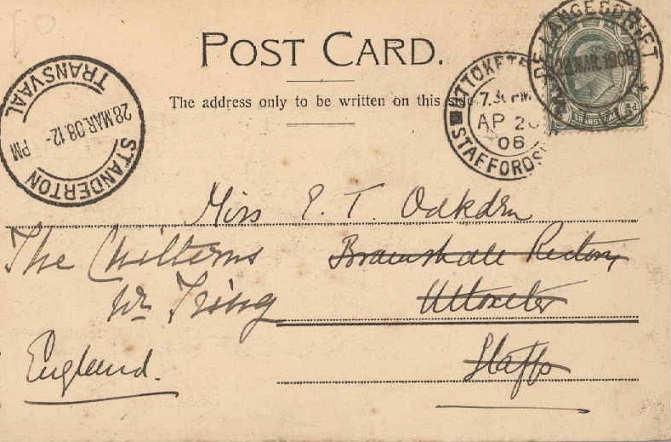 POST CARD.
The address only to be written on this side.
STANDERTON TRANSVAAL
28 MAR. 08. 12 - PM
UTTOXETE
7.30 PM
AP 20
08
STAFFORDS
DE LANGESDRIFT
28 MAR 1908
TRANSVAAL
½d
Miss E. T. Oakden
The Chilterns Bramshall Rectory
Nr Tring Uttoxeter
England. Staffs